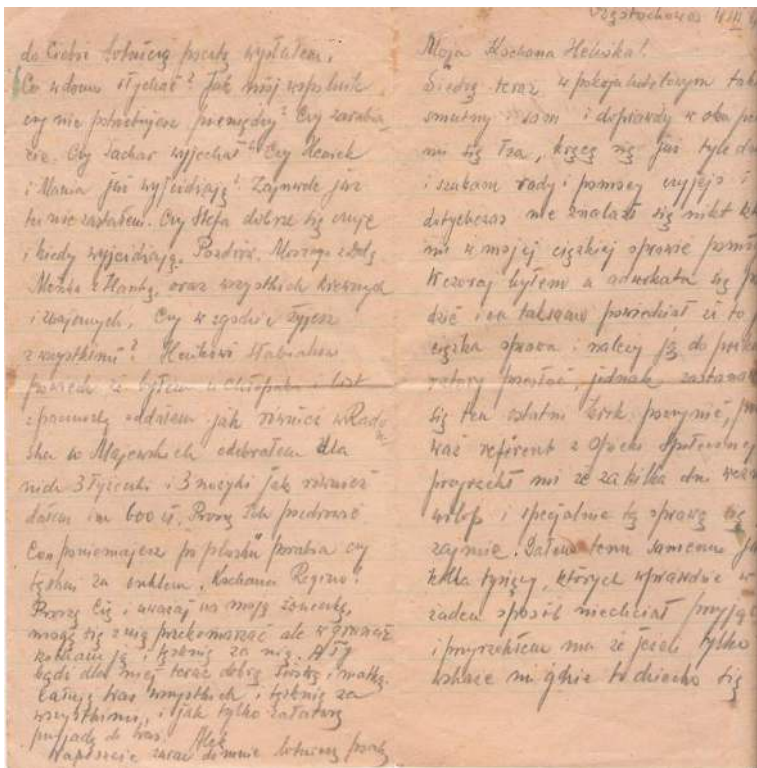 do Ciebie lotniczą pocztą wysłałem.
Co w domu słychać? Jak mój wspólnik
czy nie potrzebujesz pieniędzy? Czy zarabia-
cie. Czy Zachar wyjechał? Czy Heniek
i Mania już wyjeżdżają? już
tu nie zastałem. Czy Stefa dobrze się czuje
i kiedy wyjeżdżają. Pozdrów.
oraz wszystkich krewnych
i znajomych, Czy w zgodzie żyjesz
z wszystkimi? Heńkowi
powiedz że byłem u chłopaka i list
z pieniędzy oddałem jak również w Rado-
sku u Majewskich odebrałem dla
nich 3 łyżeczki i 3 nożyki jak również
dałem im 600 zł. Proszę Ich pozdrowić
Co porabia czy
tęskni za wujkiem. Kochana Regino!
Proszę Cię i uważaj na moją żoneczkę,
mogę się z nią przekomarzać ale w gruncie
kocham ją i tęsknię za nią. A Ty
bądź dla niej teraz dobrą siostrą i matką.
Całuję Was wszystkich i tęsknię za
wszystkimi, i jak tylko załatwię
przyjadę do Was. Alek
Napiszcie zaraz do mnie lotniczą pocztą
Częstochowa
Moja Kochana Heluśka!
Siedzę teraz w pokoju hotelowym
smutny i sam i doprawdy w oku
mi się łza, kręcę się już tyle
i szukam rady i pomocy czyjejś i
dotychczas nie znalazł się nikt
mi w mojej ciężkiej sprawie
Wczoraj byłem u adwokata się
dzić i on taksamo powiedział że to
ciężka sprawa i należy ją do
ratory posłać, jednak
się ten ostatni krok poczynić,
waż referent z Opieki Społecznej
przyrzekł mi że za kilka dni
urlop i specjalnie tą sprawą się
zajmie. Dałem temu samemu
kilka tysięcy, których wprawdzie w
żaden sposób niechciał przyjąć
i przyrzekłem mu że jeżeli tylko
wskaże mi gdzie to dziecko się